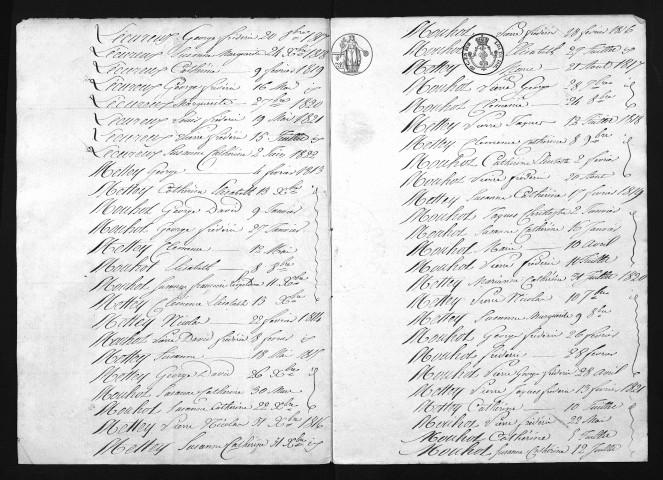 Lecureux George frédéric 20 8bre 1817
Lecureux Susanne Marguerite 24 Xbre 1818
Lecureux Catherine 9 février 1819
Lecureux George frédéric 16 Mai id
Lecureux Marguerite 27 1820
Lecureux Louis frédéric 19 Mai 1821
Lecureux Pierre frédéric 15 Juillet id
Lecureux Susanne Catherine 2 Juin 1822
Mettey George 4 février 1813
Mettey Catherine Elisabeth 13 Xbre id
Mouhot George David 9 Janvier
Mouhot George frédéric 27 Janvier
Mettey Clémence 12 Mai
Mouhot Elisabeth 8 8bre
Mouhot Jacques françois 11 Xbre
Mettey Clémence Elisabeth 13 Xbre
Mettey Nicolas 22 février 1814
Mouhot Pierre David frédéric 8 février id
Mettey Susanne 18 Mai 1815
Mettey George David 26 Xbre
Mouhot Susanne Catherine 30 Mars
Mouhot Susanne Catherine 22 Xbre
Mettey Pierre Nicolas 31 Xbre 1816
Mettey Susanne Catherine 31 Xbre id
Mouhot Pierre frédéric 28 février 1816
Mouhot Elisabeth 27 Juillet id
Mettey 21 Août 1817
Mouhot Pierre George 28
Mouhot Clémence 24 8bre
Mettey Pierre Jaques 12 Juillet 1818
Mettey Clémence Catherine 8 9bre
Mouhot Catherine Elisabeth 2 février
Mouhot Pierre frédéric 20 Août
Mettey Susanne Catherine 17 février 1819
Mouhot Jaques Christophe 2 Janvier
Mouhot Susanne Catherine 16 Janvier
Mouhot Marie 10 Avril
Mouhot Pierre frédéric 10 Juillet
Mettey Marianne Catherine 31 Juillet 1820
Mettey Pierre Nicolas 10 7bre
Mettey Susanne Marguerite 9 8bre
Mouhot George frédéric 26 février
Mouhot frédéric 28 février
Mouhot Pierre George frédéric 28 avril
Mettey Pierre Jaques frédéric 13 février 1821
Mettey Catherine 10 Juillet
Mouhot Pierre frédéric 22 Mai
Mouhot Catherine 1 Juillet
Mouhot Susanne Catherine 12 Juillet